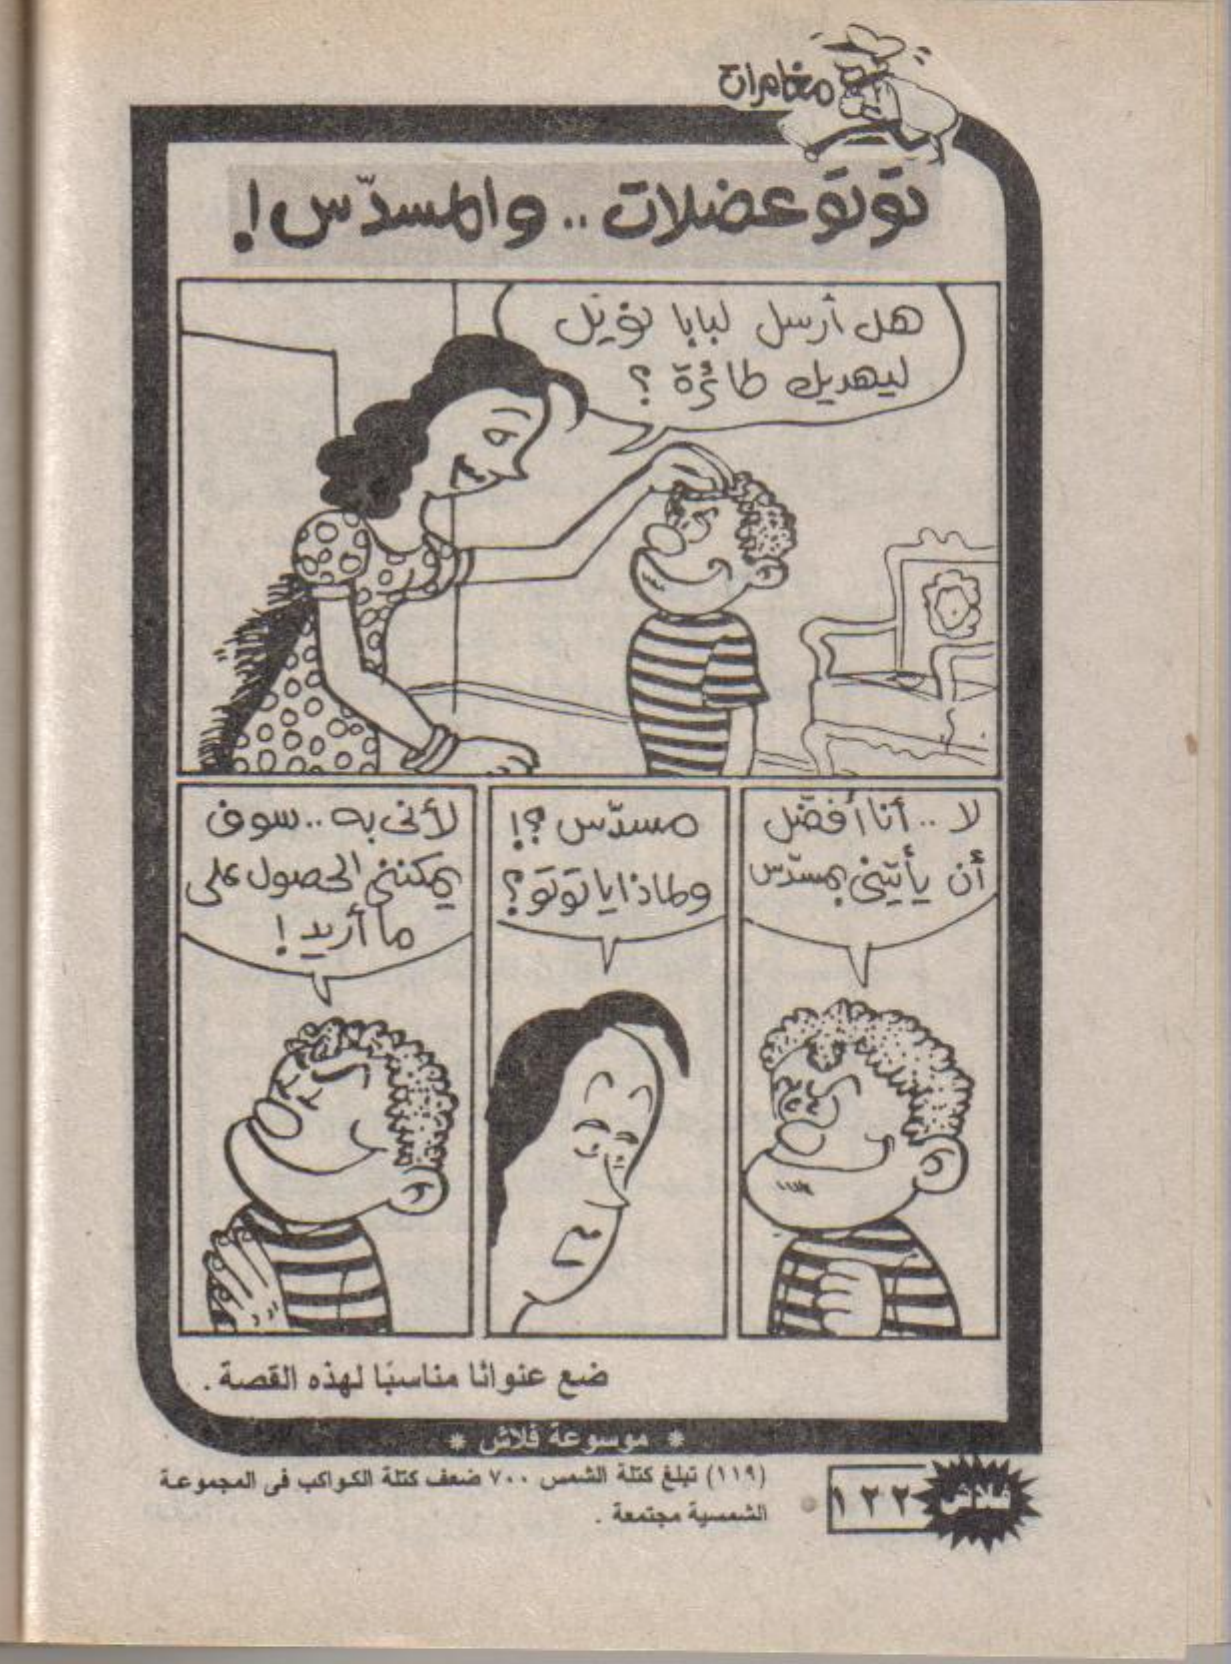 مغامرات
توتو عضلات .. والمسدّس !
هل أرسل لبابا نويل
ليهديك طائرة ؟
لا .. أنا أفضّل
أن يأتينى بمسدّس
مسدّس ؟!
ولماذا يا توتو ؟
لأنى به .. سوف
يمكننى الحصول على
ما أريد !
ضع عنوانًا مناسبًا لهذه القصة .
* موسوعة فلاش *
(١١٩) تبلغ كتلة الشمس ٧٠٠ ضعف كتلة الكواكب فى المجموعة
الشمسية مجتمعة .
فلاش ١٢٢